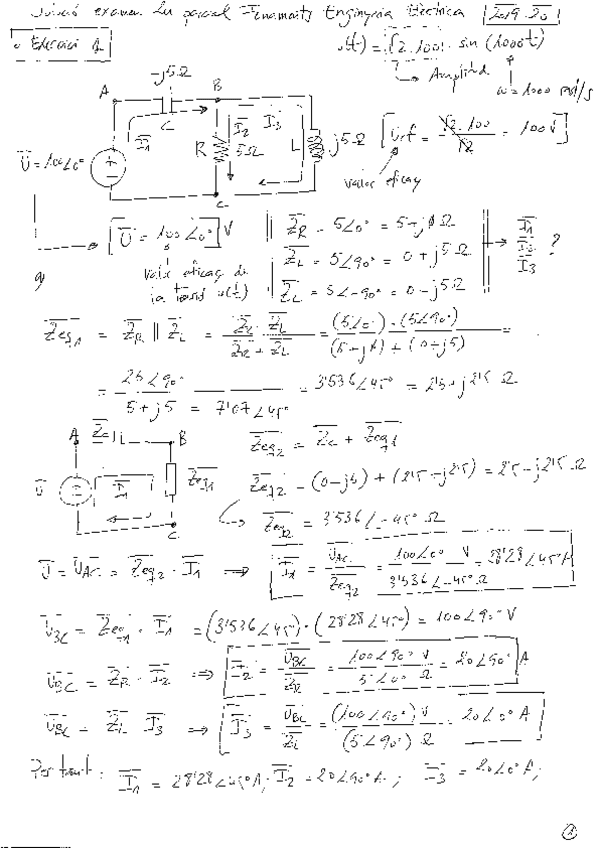 examen 2n parcial Fonaments Enginyeria Elèctrica |2019-20|
• Exercici 1
u(t) = √2·100 · sin(1000t)
Amplitud
ω=1000 rad/s
-j5Ω
A
B
C
I1
I2
I3
R
5Ω
L
j5Ω
[Uef = √2·100/√2 = 100V]
valor eficaç
U=100∠0°
C
[U = 100∠0°] V
valor eficaç de
la tensió u(t)
ZR = 5∠0° = 5+j0 Ω
ZL = 5∠90° = 0+j5 Ω
= 5∠-90° = 0-j5 Ω
I1
I2
I3
?
a)
Zeq1 = ZR ∥ ZL = ZR·ZL/(ZR+ZL) = (5∠0°)·(5∠90°)/((5+j0)+(0+j5)) =
= 25∠90°/(5+j5 = 7'07∠45°) = 3'536∠45° = 2'5+j2'5 Ω
A
B
Zeq1
U
I1
C
Zeq2 = Zc + Zeq1
Zeq2 = (0-j5) + (2'5+j2'5) = 2'5-j2'5 Ω
Zeq2 = 3'536∠-45° Ω
U = UAC = Zeq2 · I1 ⇒ I1 = UAC/Zeq2 = 100∠0° V/3'536∠-45° Ω = 28'28∠45° A
UBC = Zeq1 · I1 = (3'536∠45°)·(28'28∠45°) = 100∠90° V
UBC = ZR · I2 ⇒ I2 = UBC/ZR = 100∠90° V/5∠0° Ω = 20∠90° A
UBC = ZL I3 ⇒ I3 = UBC/ZL = (100∠90°) V/(5∠90°) Ω = 20∠0° A
Per tant: I1 = 28'28∠45° A; I2 = 20∠90° A; I3 = 20∠0° A;